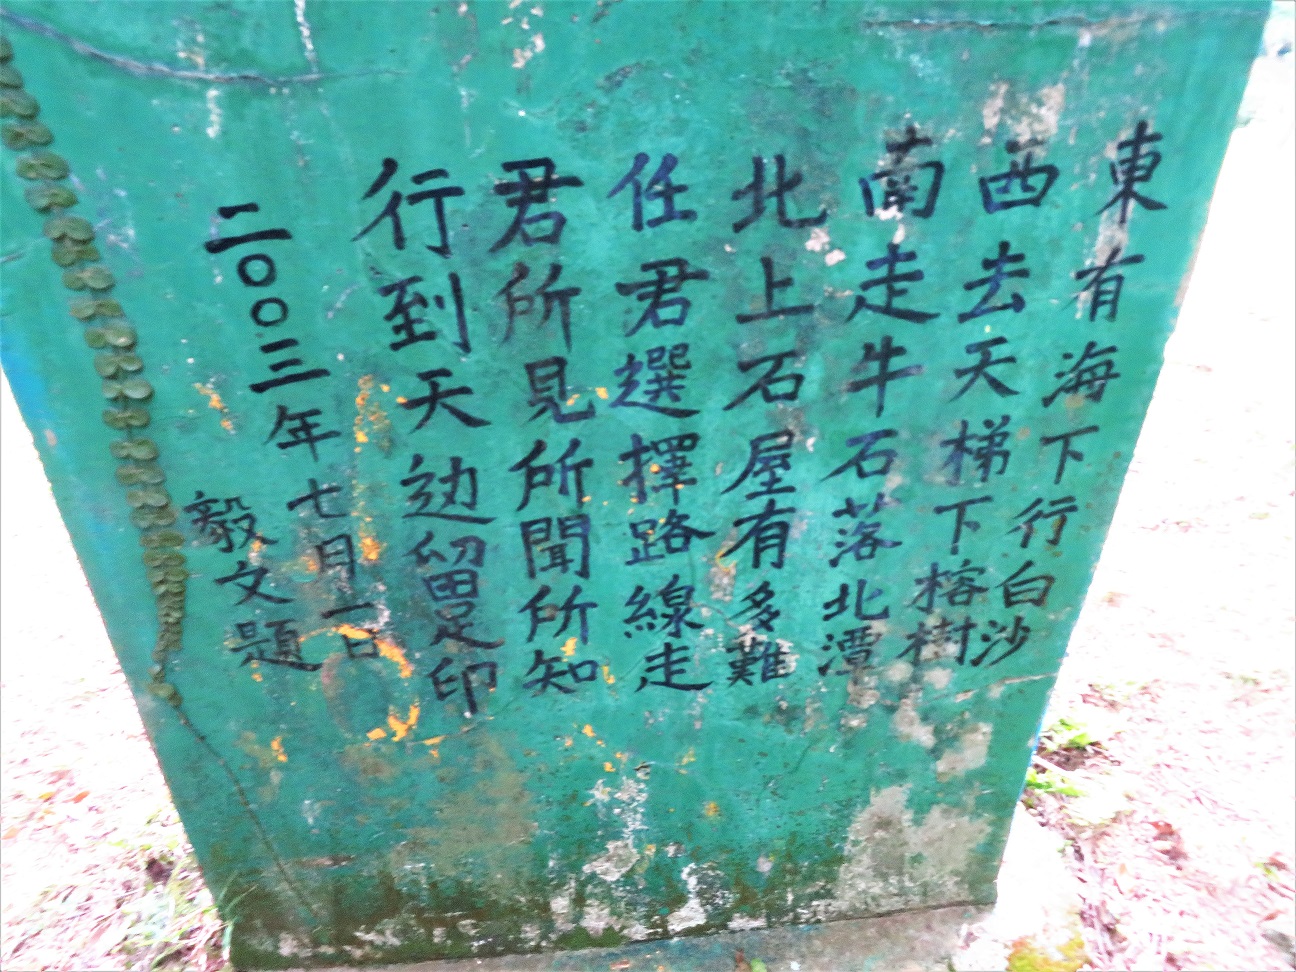 東有海下行白沙
西去天梯下榕樹
南走牛石落北潭
北上石屋有多難
任君選擇路線走
君所見所聞所知
行到天边留足印
二〇〇三年七月一日
毅文題